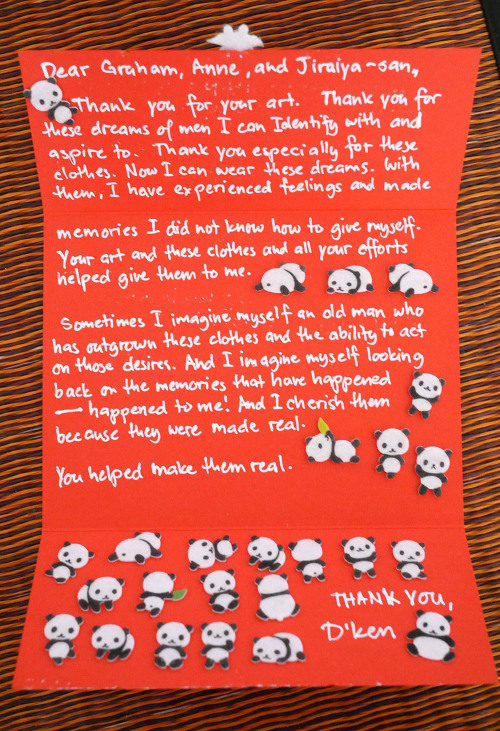 Dear Graham, Anne, and Jiraiya-san,
Thank you for your art. Thank you for
these dreams of men I can Identify with and
aspire to. Thank you especially for these
clothes. Now I can wear these dreams. With
them, I have experienced feelings and made
memories I did not know how to give myself.
Your art and these clothes and all your efforts
helped give them to me.
Sometimes I imagine myself an old man who
has outgrown these clothes and the ability to act
on those desires. And I imagine myself looking
back on the memories that have happened
— happened to me! And I cherish them
because they were made real.
You helped make them real.
THANK YOU,
D'ken